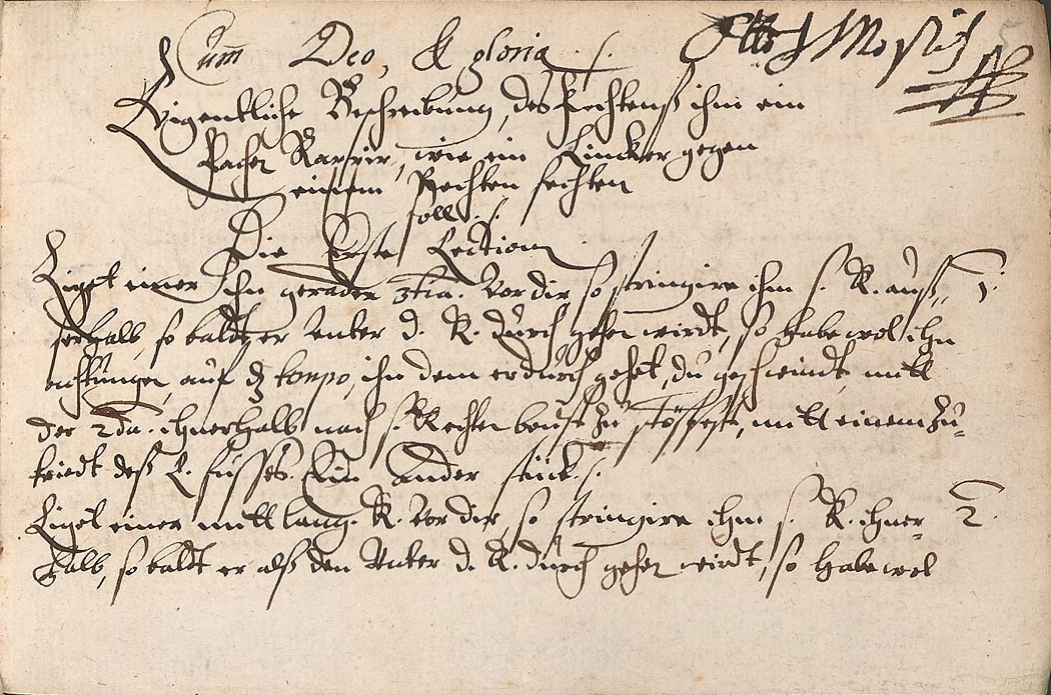 Cum Deo, & gloria ./.
Eigentliche Beschreibung, des Fechtenß ihm ein
Rappir, wie ein Lincker gegen
einem Rechten fechten
soll ./.
Die Erste Lection
Liget einer ihn gerader 3tia. vor dir so stringire ihm s. R. auß„ 1.
serhalb, so baldt er unter d. R. durch gehen wirdt, so habe wol ihn
achtungen, auf dz tempo, ihn dem er durch gehet, du geschwindt mitt
der 2da. ihnerhalb nach s. Rechten brust zu stossest, mitt einem zu„
triedt deß L. fusses. Ein ander stuck ./.
Liget einer mitt lang. R. vor dir, so stringire ihm s. R. ihner„ 2.
halb, so baldt er alß den unter d. R. durch gehen wirdt, so habe wol